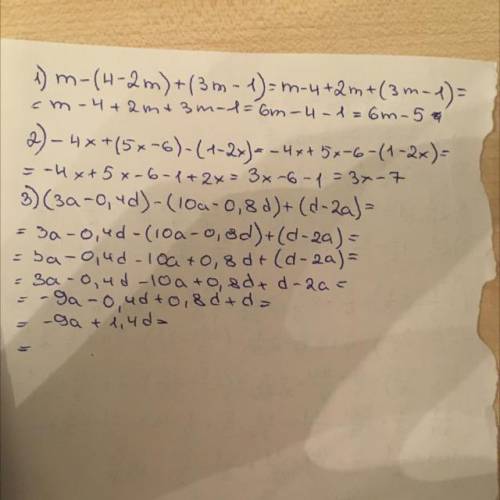 1) m-(4-2m)+(3m-1)=m-4+2m+(3m-1)=
= m-4+2m+3m-1=6m-4-1=6m-5
2) -4x+(5x-6)-(1-2x)=-4x+5x-6-(1-2x)=
= -4x+5x-6-1+2x= 3x-6-1=3x-7
3)(3a-0,4d)-(10a-0,8d)+(d-2a)=
= 3a-0,4d-(10a-0,8d)+(d-2a)=
= 3a-0,4d-10a+0,8d+(d-2a)=
= 3a-0,4d-10a+0,8d+d-2a=
= -9a-0,4d+0,8d+d=
= -9a+1,4d=
=